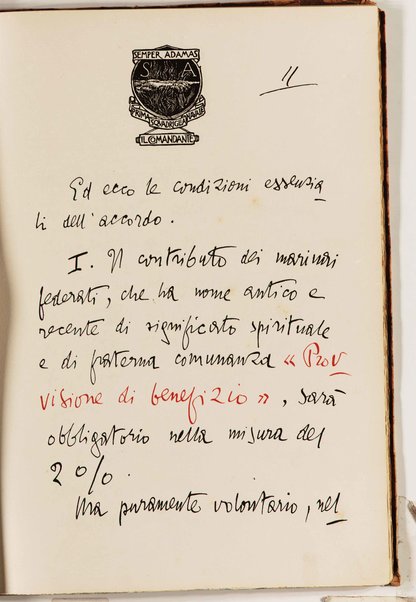 SEMPER ADAMAS
S A
PRIMA SQUADRIGLIA NAVALE
IL COMANDANTE
11
Ed ecco le condizioni essenzia
li dell'accordo.
I. Il contributo dei marinai
federati, che ha nome antico e
recente di significato spirituale
e di fraterna comunanza « Prov
visione di benefizio », sarà
obbligatorio nella misura del
2 0/0.
Ma puramente volontario, nel